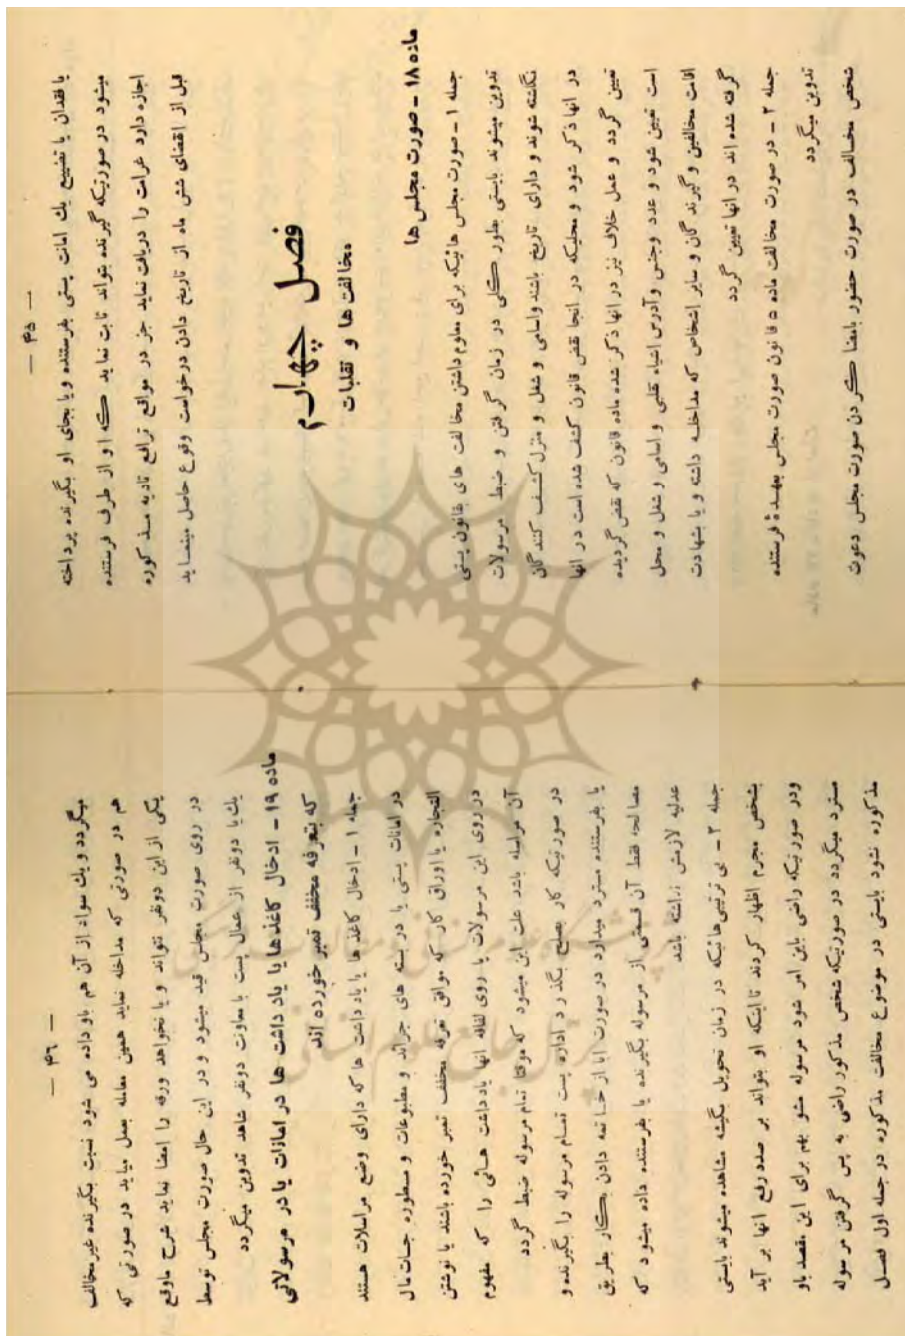 — ۴۵ —
یا فقدان یا تضییع یك امانت پستی بفرستنده ویا بجای او بگیرنده پرداخته
میشود در صورتیکه گیرنده بتواند ثابت نماید که او از طرف فرستنده
اجازه دارد غرامت را دریافت نماید جز در مواقع ترافع تادیه مذکوره
قبل از انقضای شش ماه از تاریخ دادن درخواست وقوع حاصل مینماید
فصل چهارم
مخالفت ها و تقلبات
ماده ۱۸ ـ صورت مجلس ها
جمله ۱ ـ صورت مجلس هائیکه برای معلوم داشتن مخالفت های بقانون پستی
تدوین میشوند بایستی بطور کلی در زمان گرفتن و ضبط مرسولات
نگاشته شوند و دارای تاریخ باشند واسامی و شغل و منزل کشف کنندگان
در انها ذکر شود و محلیکه در انجا نقض قانون کشف شده است در انها
تعیین گردد و عمل خلاف نیز در انها ذکر شده ماده قانون که نقض گردیده
است تعیین شود و عدد وجنس وآدرس اشیاء تقلبی و اسامی و شغل و محل
اقامت مخالفین و گیرندگان و سایر اشخاص که مداخله داشته و یا بشهادت
گرفته شده اند در انها تعیین گردد
جمله ۲ ـ در صورت مخالفت ماده ۵ قانون صورت مجلس بعهدۀ فرستنده
تدوین میگردد
شخص مخالف در صورت حضور بامضا کردن صورت مجلس دعوت
— ۴۶ —
میگردد و یك سواد از آن هم باو داده می شود نسبت بگیرنده غیر مخالف
هم در صورتی که مداخله نماید همین معامله بعمل میاید در صورتی که
یکی از این دونفر نتواند و یا نخواهد ورقه را امضا نماید شرح ماوقع
در روی صورت مجلس قید میشود و در این حال صورت مجلس توسط
یك یا دونفر از عمال پست با معاونت دونفر شاهد تدوین میگردد
ماده ۱۹ ـ ادخال کاغذ ها یا یاد داشت ها در امانات یا در مرسولاتی
که بتعرفه مخفف تمبر خورده اند
جمله ۱ ـ ادخال کاغذ ها یا یاد داشت ها که دارای وضع مراسلات هستند
در امانات پستی یا در بسته های جرائد و مطبوعات و مسطوره جات مال
التجاره یا اوراق کار که موافق تعرفه مخفف تمبر خورده باشند یا نوشتن
در روی این مرسولات یا روی لفافه انها یاد داشت هائی را که مفهوم
آن مراسله باشد علت این میشود که موقتا تمام مرسوله ضبط گردد
در صورتیکه کار بصلح بگذرد اداره پست تمام مرسوله را بگیرنده و
یا بفرستنده مسترد میدارد در صورت ابا از خاتمه دادن بکار بطریق
مصالحه فقط آن قسمتی از مرسوله بگیرنده یا بفرستنده داده میشود که
عدلیه لازمش نداشته باشد
جمله ۲ ـ بی ترتیبی هائیکه در زمان تحویل بگیشه مشاهده میشوند بایستی
بشخص مجرم اظهار کردند تا اینکه او بتواند بر صدد رفع انها بر آید
ودر صورتیکه راضی باین امر شود مرسوله مشو بهم برای این مقصد باو
مسترد میگردد در صورتیکه شخص مذکور راضی به پس گرفتن مرسوله
مذکوره نشود بایستی در موضوع مخالفت مذکوره در جمله اول فصل